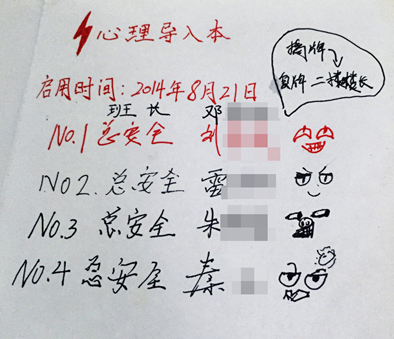 心理导入本
启用时间：2014年8月21日
班长 邓
NO.1 总安全 刘
NO2. 总安全 雷
NO.3 总安全 朱
NO.4 总安全 秦
摘牌
自牌 二楼 长